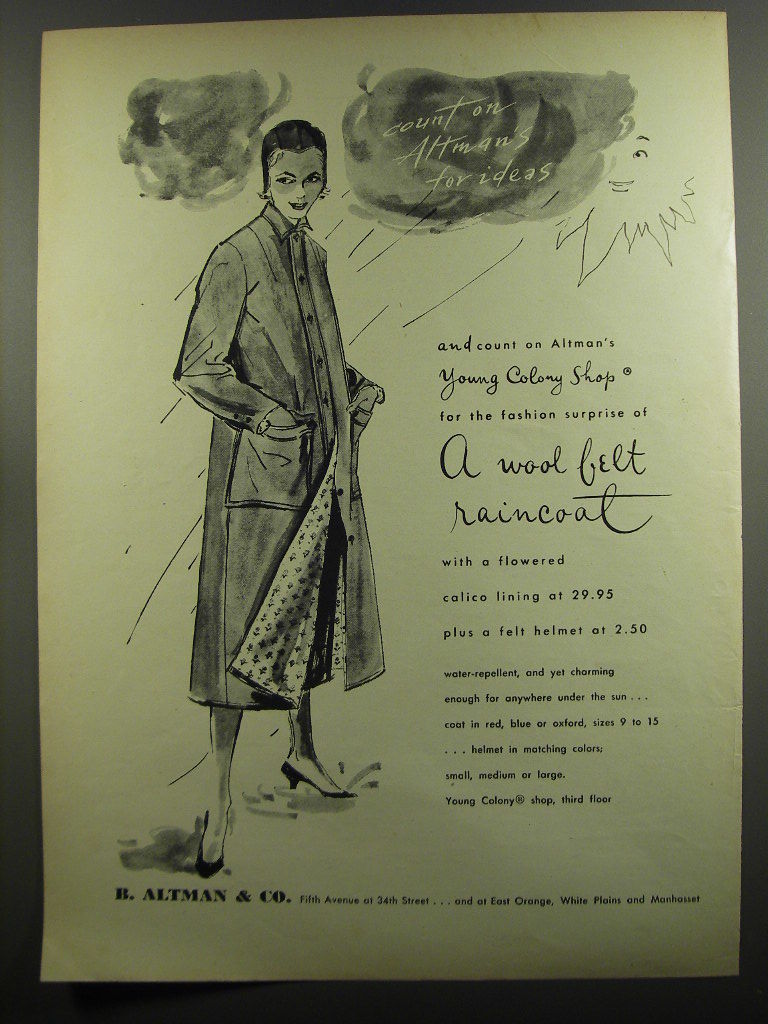 count on
Altman's
for ideas
and count on Altman's
Young Colony Shop ®
for the fashion surprise of
A wool felt
raincoat
with a flowered
calico lining at 29.95
plus a felt helmet at 2.50
water-repellent, and yet charming
enough for anywhere under the sun . . .
coat in red, blue or oxford, sizes 9 to 15
. . . helmet in matching colors;
small, medium or large.
Young Colony® shop, third floor
B. ALTMAN & CO. Fifth Avenue at 34th Street . . . and at East Orange, White Plains and Manhasset